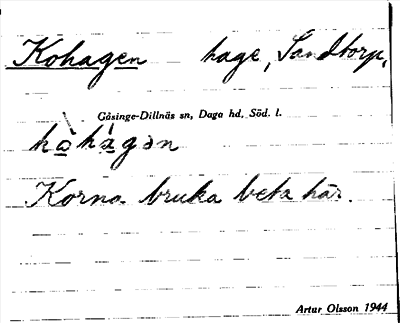 Kohagen hage, Sandtorp,
Gåsinge-Dillnäs sn, Daga hd, Söd. l.
Korna bruka beta här.
Artur Olsson 1944